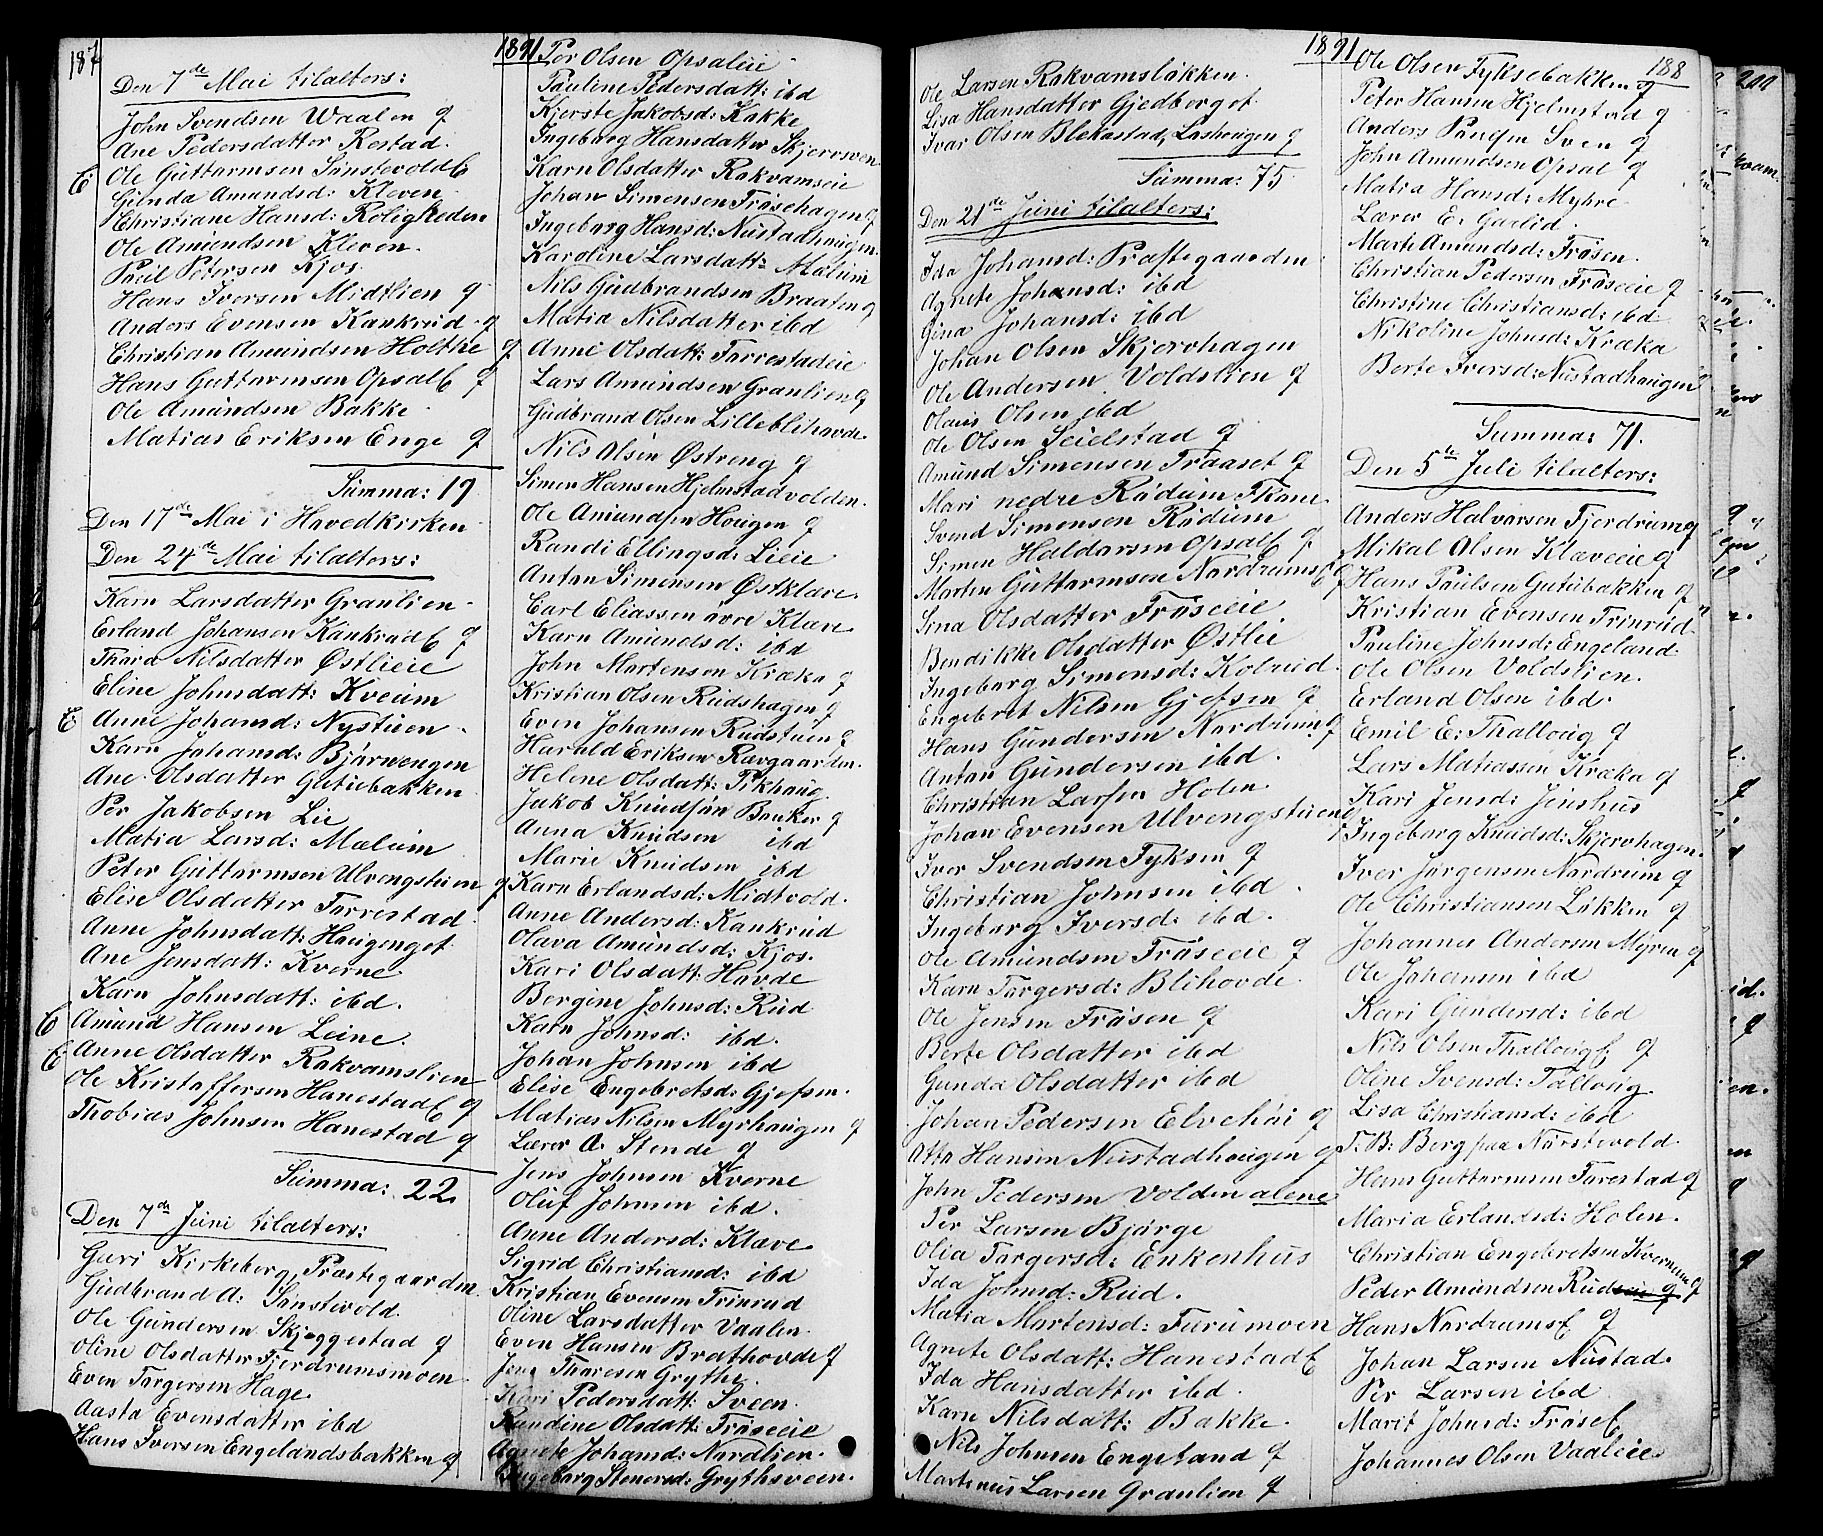 187
1891
Den 7de Mai tilalters:
John Svendsen Waalen g
Ane Pedersdatter Restad.
E Ole Guttormsen Sønstevold E
Gunda Amundsd: Kleven.
Christiane Hansd: Roligheden
Ole Amundsen Kleven.
Paul Petersen Kjos.
Hans Iversen Midtlien g
Anders Evensen Kankrud g
Christian Amundsen Holthe g
Hans Guttormsen Opsal E g
Ole Amundsen Bakke.
Matias Eriksen Enge g
Summa: 19
Den 17de Mai i Hovedkirken
Den 24de Mai tilalters:
Karn Larsdatter Graulien.
Erland Johansen Kankrud E g
Thora Nilsdatter Østlieie
Eline Johnsdatt: Kveum
E Anne Johansd: Nystuen.
Karn Johansd: Bjørnengen
Ane Olsdatter Gutubakken
Per Jakobsen Lie
Matia Larsd: Mælum
Peter Guttormsen Ulvengstuen g
Elise Olsdatter Forrestad
Anne Johnsdatt: Haugenget
Ane Jensdatt: Kverne
Karn Johnsdatt: ibd.
E Amund Hansen Leine.
E Anne Olsdatter Rakvamslien
Ole Kristoffersen Hanestad E g
Thobias Johnsen Hanestad g
Summa: 22
Den 7de Juni tilalters:
Guri Kirkeberg, Præstegaarden
Gudbrand A: Sønstevold.
Ole Gundersen Skjeggestad g
Oline Olsdatter Fjerdrumsmoen.
Even Torgersen Hage.
Aasta Evensdatter ibd
Hans Iversen Engelandsbakken g
Per Olsen Opsaleie
Pauline Pedersdatt: ibd
Kjerste Jakobsd: Kakke
Ingeborg Hansdatter Skjervsven
Karn Olsdatter Rakvamseie
Johan Simensen Frøsehagen g
Ingeborg Hansd: Nustadhaugen.
Karoline Larsdatt: Mælum
Nils Gudbrandsen Braaten g
Matia Nilsdatter ibd
Anne Olsdatt: Forrestadeie
Lars Amundsen Graulien g
Gudbrand Olsen Lilleblihovde.
Nils Olsen Østreng g
Simen Hansen Hjelmstadvolden.
Ole Amundsen Hougen g
Randi Ellingsd: Lieie
Anton Simensen Østklæve.
Carl Eliassen øvre Klæve
Karn Amundsd: ibd
John Martensen Kræka g
Kristian Olsen Rudshagen g
Even Johansen Rudstuen g
Harald Eriksen Rævgaarden.
Helene Olsdatt: Pikhaug.
Jakob Knudsen Banker g
Anna Knudsen ibd
Marie Knudsen ibd
Karn Erlandsd: Midtvold.
Anne Andersd: Kankrud
Olava Amundsd: Kjos.
Kari Olsdatt: Hovde
Bergine Johnsd: Rud
Karn Johnsd: ibd.
Johan Johnsen ibd
Elise Engebretsd: Gjefsen.
Matias Nilsen Myrhaugen g
Lærer A. Stende g
Jens Johnsen Kverne
Oluf Johnsen ibd.
Anne Andersd: Klæve
Sigrid Christiansd: ibd
Kristian Evensen Trinrud
Oline Larsdatter Vaalen.
Even Hansen Brathovde g
Jens Thoresen Grythe.
Kari Pedersdatt: Sveen.
Randine Olsdatt: Frøseeie
Agnete Johansd: Nordlien.
Ingeborg Stenersd: Grythsveen.
1891
188
Ole Larsen Rakvamsløkken.
Lisa Hansdatter Gjedberget
Ivar Olsen Blekastad, Lashougen g
Summa: 75
Den 21de Juni tilalters:
Ida Johansd: Præstegaarden
Agnete Johansd: ibd
Gina Johansd: ibd
Johan Olsen Skjervhagen
Ole Andersen Voldslien g
Olaus Olsen ibd
Ole Olsen Seielstad g
Amund Simensen Fraaset g
Mari nedre Rødum Skone.
Svend Simensen Rødum
Simen Haldorsen Opsal E g
Morten Guttormsen Nordrums E g
Sina Olsdatter Frøseeie
Bendikke Olsdatter Østlie
Ingeborg Simensd: Kolrud.
Engebret Nilsen Gjefsen g
Hans Gundersen Nordrum g
Anton Gundersen ibd.
Christian Larsen Holen
Johan Evensen Ulvengstuen g
Iver Svendsen Fyksen g
Christian Johnsen ibd.
Ingeborg Iversd: ibd.
Ole Amundsen Frøseeie g
Karn Torgersd: Blihovde
Ole Jensen Frøsen g
Berte Olsdatter ibd
Gunda Olsdatter ibd
Johan Pedersen Elvehøi g
Otto Hansen Nustadhaugen g
John Pedersen Volden alene
Per Larsen Bjørge
Olia Torgersd: Enkenhus
Ida Johnsd: Rud.
Matia Martensd: Furumoen
Agnete Olsdatt: Hanestad E
Ida Hansdatter ibd.
Karn Nilsdatt: Bakke.
Nils Johnsen Engeland g
Martinus Larsen Graulien g
Ole Olsen Fyksebakken g
Peter Hansen Hjelmstad g
Anders Paulsen Sven g
John Amundsen Opsal g
Matia Hansd: Myhre.
Lærer E. Garlid.
Marte Amundsd: Frøsen.
Christian Pedersen Frøseeie g
Christine Christiansd: ibd.
Nikoline Johnsd: Kræka
Berte Iversd: Nustadhaugen
Summa: 71.
Den 5te Juli tilalters:
Anders Halvorsen Fjerdrum g
Mikal Olsen Klæveeie g
Hans Paulsen Gutubakken g
Kristian Evensen Trinrud
Pauline Johnsd: Engeland
Ole Olsen Voldslien.
Erland Olsen ibd.
Emil E: Thalloug g
Lars Matiassen Kræka g
Kari Jensd: Jenshus
Ingeborg Knudsd: Skjervhagen.
Iver Jørgensen Nordrum g
Ole Christiansen Løkken g
Johannes Andersen Myren g
Ole Johansen ibd
Kari Gundersd: ibd
Nils Olsen Thalloug E g
Oline Svensd: Talloug.
Lisa Christiansd: ibd
T. B: Berg paa Nørstevold
Hans Guttormsen Forestad g
Maria Erlandsd: Holen.
Christian Engebretsen Kvernene g
Peder Amundsen Rudseie g
Hans Nordrums E g
Johan Larsen Nustad.
Per Larsen ibd
Marit Johnsd: Frøse E
Johannes Olsen Vaaleie.
200